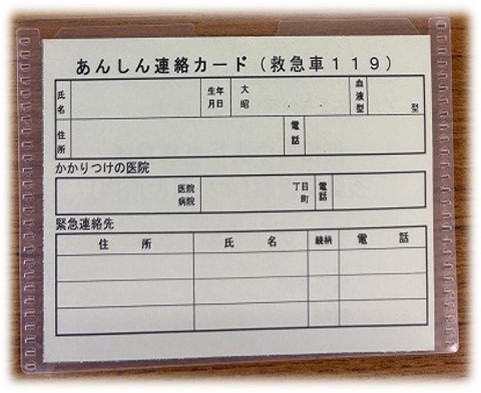 あんしん連絡カード（救急車１１９）
氏名 生年月日 大 昭 ． ． 血液型 型
住所 電話
かかりつけの医院
医院 病院 丁目 町 電話
緊急連絡先
住所 氏名 続柄 電話